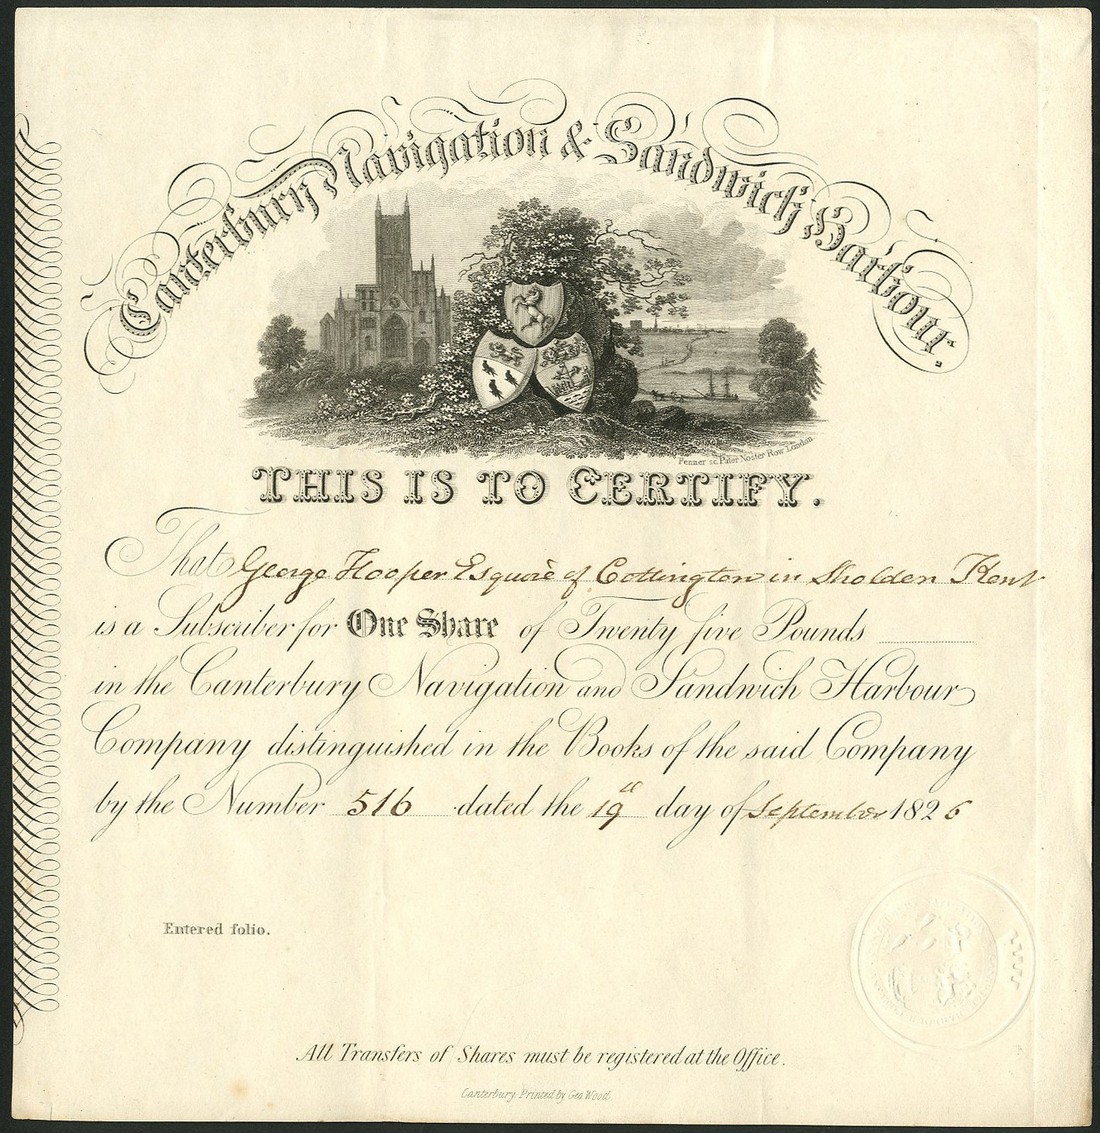 Canterbury Navigation & Sandwich Harbour.
Penner sc. Pater Noster Row London
THIS IS TO CERTIFY.
That George Hooper Esquire of Cottington in Sholden Kent
is a Subscriber for One Share of Twenty five Pounds
in the Canterbury Navigation and Sandwich Harbour
Company distinguished in the Books of the said Company
by the Number 516 dated the 19th day of September 1826
Entered folio.
All Transfers of Shares must be registered at the Office.
Canterbury Printed by Geo. Wood